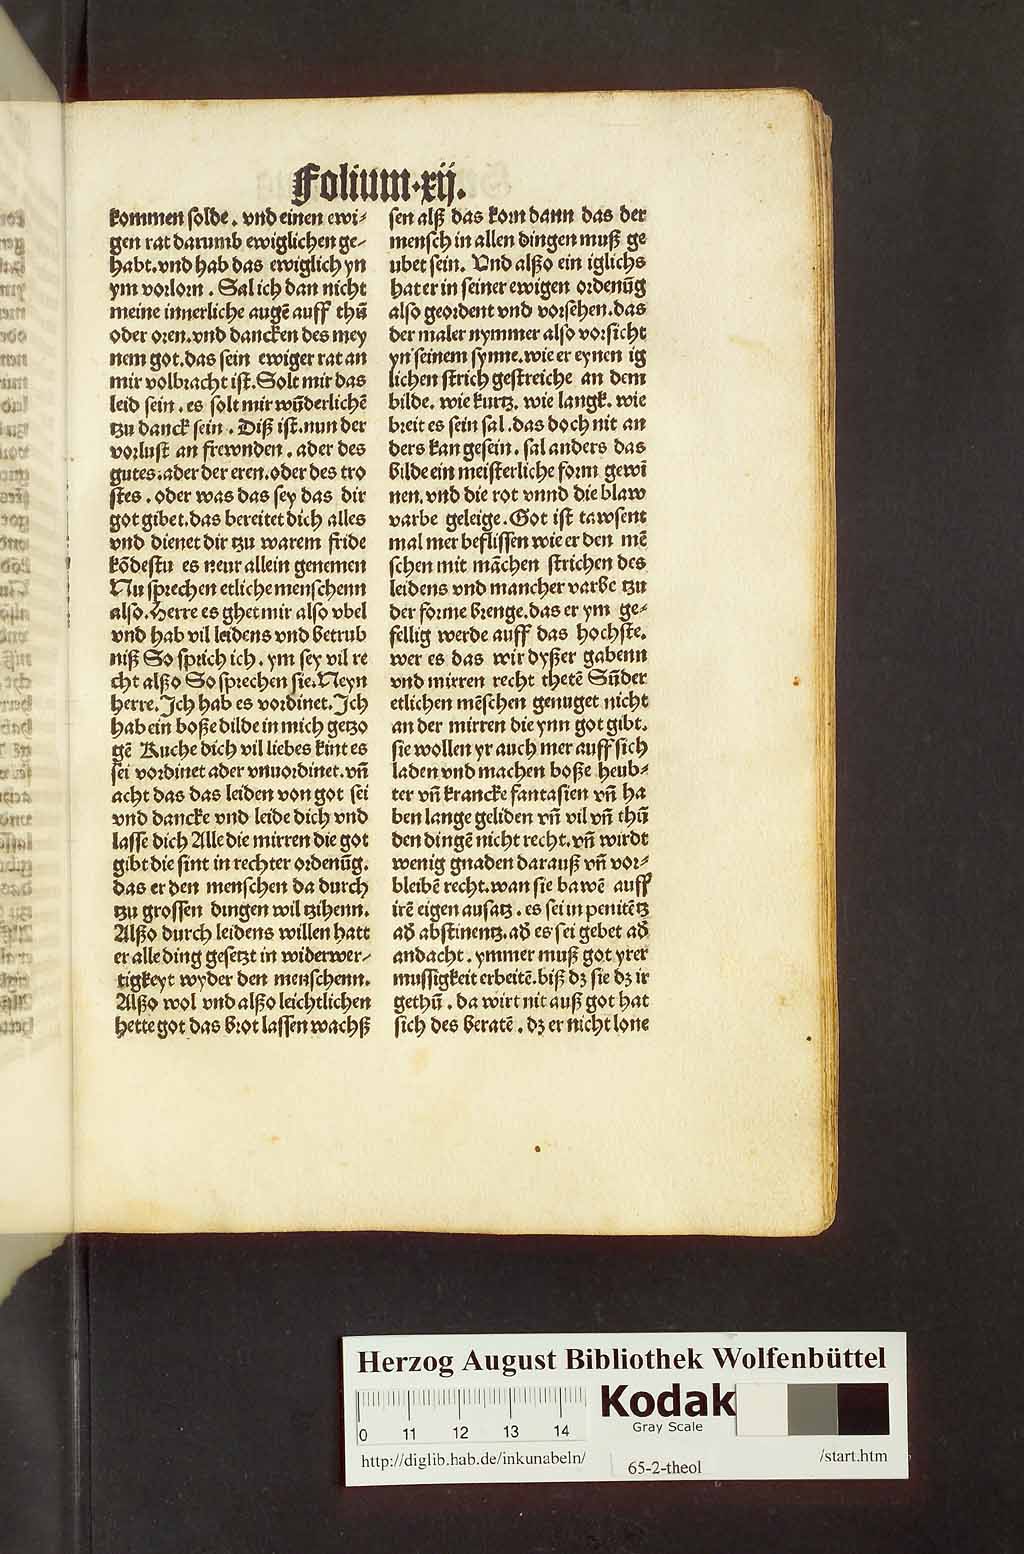 Folium·xij.
kommen solde. vnd einen ewi⸗
gen rat darumb ewiglichen ge⸗
habt. vnd hab das ewiglich yn
ym vorlorn. Sal ich dan nicht
meine innerliche augē auff thū
oder oren. vnd dancken des mey
nem got. das sein ewiger rat an
mir volbracht ist. Solt mir das
leid sein. es solt mir wūderlichē
tzu danck sein. Diß ist. nun der
vorlust an frewnden. ader des
gutes. ader der eren. oder des tro
stes. oder was das sey das dir
got gibet. das bereitet dich alles
vnd dienet dir tzu warem fride
kōdestu es neur allein genemen
Nu sprechen etliche menschenn
also. Herre es ghet mir also vbel
vnd hab vil leidens vnd betrub
niß So sprich ich. ym sey vil re
cht alßo So sprechen sie. Neyn
herre. Ich hab es vordinet. Ich
hab ein boße bilde in mich getzo
gē Ruche dich vil liebes kint es
sei vordinet ader vnuordinet. vn̄
acht das das leiden von got sei
vnd dancke vnd leide dich vnd
lasse dich Alle die mirren die got
gibt die sint in rechter ordenūg.
das er den menschen da durch
tzu grossen dingen wil tzihenn.
Alßo durch leidens willen hatt
er alle ding gesetzt in widerwer⸗
tigkeyt wyder den menschenn.
Alßo wol vnd alßo leichtlichen
hette got das brot lassen wachß
sen alß das korn dann das der
mensch in allen dingen muß ge
ubet sein. Vnd alßo ein iglichs
hat er in seiner ewigen ordenūg
also geordent vnd vorsehen. das
der maler nymmer also vorsicht
yn seinem synne. wie er eynen ig
lichen strich gestreiche an dem
bilde. wie kurtz. wie langk. wie
breit es sein sal. das doch nit an
ders kan gesein. sal anders das
bilde ein meisterliche form gewī
nen. vnd die rot vnnd die blaw
varbe geleige. Got ist tawsent
mal mer beflissen wie er den mē
schen mit māchen strichen des
leidens vnd mancher varbe tzu
der forme brenge. das er ym ge⸗
fellig werde auff das hochste.
wer es das wir dyßer gabenn
vnd mirren recht thetē Sūder
etlichen mēschen genuget nicht
an der mirren die ynn got gibt.
sie wollen yr auch mer auff sich
laden vnd machen boße heub⸗
ter vn̄ krancke fantasien vn̄ ha
ben lange geliden vn̄ vil vn̄ thū
den dingē nicht recht. vn̄ wirdt
wenig gnaden darauß vn̄ vor⸗
bleibē recht. wan sie bawē auff
irē eigen ausatz. es sei in penitētz
ad̄ abstinentz. ad̄ es sei gebet ad̄
andacht. ymmer muß got yrer
mussigkeit erbeitē. biß dz sie dz ir
gethū. da wirt nit auß got hat
sich des beratē. dz er nicht lone
Herzog August Bibliothek Wolfenbüttel
Kodak
Gray Scale
0 11 12 13 14
http://diglib.hab.de/inkunabeln/
65-2-theol
/start.htm